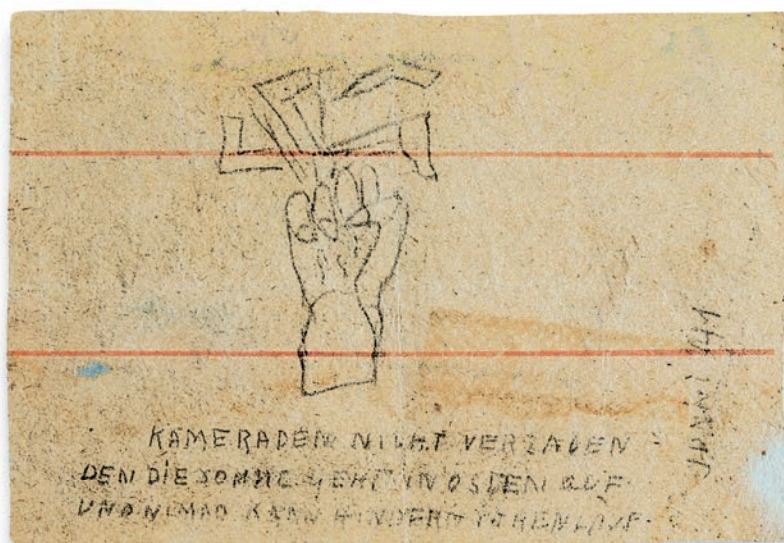 KAMERADEN NICHT VERZAGEN
DEN DIE SONNE GEHT IN OSTEN AUF
UND NIMAD KANN HINDERN IHREN LAUF.
41